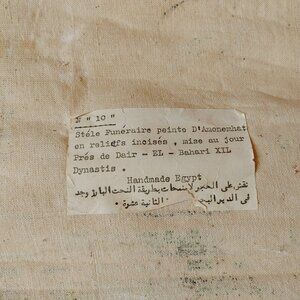 N " 10 "
Stéle Funéraire peinte D'Amonemhat
en reliefs incisés , mise au jour
Prés de Dair - EL - Bahari XIL
Dynastis .
Handmade Egypt
نقش على الحجر لامنمحات بطريقة النحت البارز وجد
فى الدير البحـ الثانية عشرة .